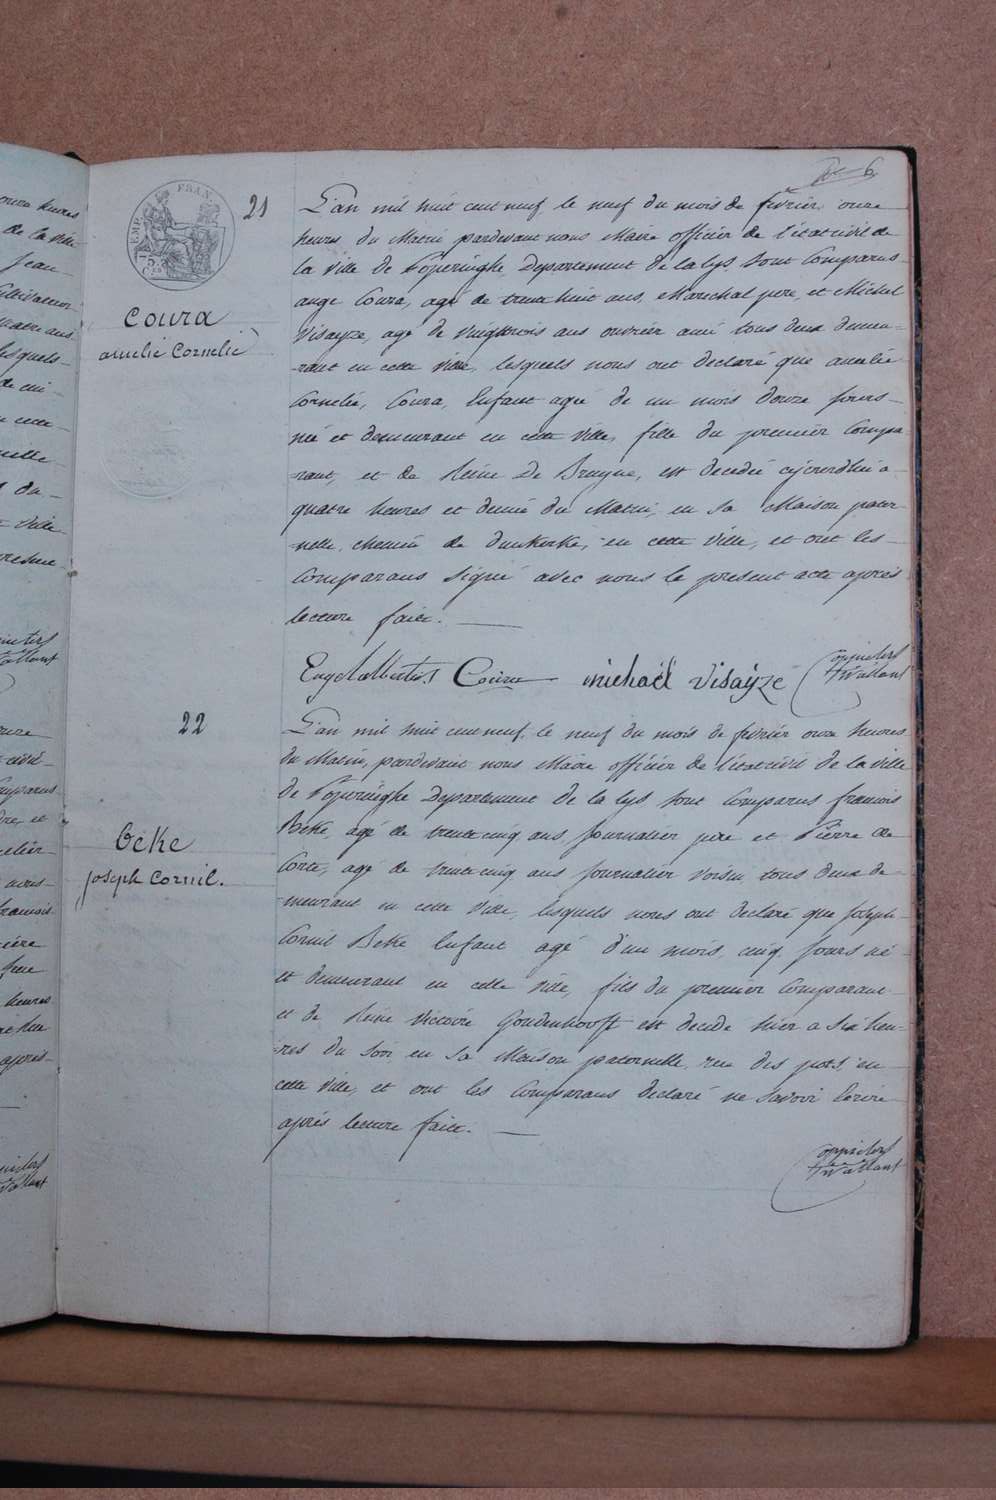 6
EMP. FRAN
21
Coura
amelie Cornelie
L'an mil huit cent neuf, le neuf du mois de fevrier onze
heures du Matin pardevant nous Maire officier de l'état civil de
la ville de Poperinghe Departement de la lys sont Comparus
ange Coura, agé de trente huit ans, Marechal pere, et Michel
Visayze, agé de vingt trois ans ouvrier ami tous deux demeu-
-rant en cette ville, lesquels nous ont declaré que amelie
Cornelie, Coura, Enfant agée de un mois douze jours-
née et demeurant en cette ville, fille du premier Compa-
-rant, et de Reine De Bruyne, est decedée cejourdhui a
quatre heures et demie du Matin, en sa Maison pater-
-nelle, chemin de dunkerke, en cette ville, et ont les-
Comparans signé avec nous le present acte après
lecture faite.
Engelalbertus Coura michaël visayze
22
Beke
joseph Cornil.
L'an mil huit cent neuf, le neuf du mois de fevrier onze heures
du Matin, pardevant nous Maire officier de l'état civil de la ville
de Poperinghe Departement de la lys sont Comparus francois
Beke, agé de trente cinq ans journalier pere et Pierre de
Corte, agé de trente cinq ans journalier voisin tous deux de-
-meurant en cette ville, lesquels nous ont declaré que joseph-
Cornil Beke Enfant agé d'un mois, cinq jours né-
et demeurant en cette ville, fils du premier Comparant
et de Reine Victoire Goudenhooft est decede hier a six heu-
-res du soir en sa Maison paternelle, rue des pots, en-
cette ville, et ont les Comparans declaré ne savoir Ecrire
après lecture faite.